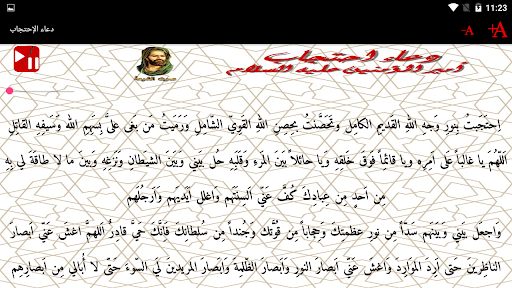 11:23
دعاء الإحتجاب
-A
+A
دعاء احتجاب
أمير المؤمنين عليه السلام
إحتَجَبتُ بِنورِ وَجهِ اللهِ القَديمِ الكامِلِ وتَحَصَّنتُ بِحِصنِ اللهِ القَويِّ الشّامِلِ وَرَمَيتُ مَن بَغى عَليَّ بِسَهمِ اللهِ وَسَيفِهِ القاتِلِ
اَللّهُمَّ يا غالباً عَلى اَمرِهِ ويا قائماً فَوقَ خَلقِهِ ويا حائلاً بَينَ المَرءِ وَقَلبِهِ حُل بَيني وَبَينَ الشَيطانِ وَنَزغِهِ وَبَينَ ما لا طاقَةَ لي بِهِ
مِن اَحدٍ مِن عِبادِكَ كُفَّ عَنّي اَلسِنَتَهُم وَاغلل اَيدِيَهُم وَاَرجُلَهُم
وَاجعَل بَيني وَبَينَهُم سَدّاً مِن نورِ عظمتِكَ وَحِجاباً مِن قُوَّتِكَ وَجُنداً مِن سُلطانِكَ فَاِنَّكَ حَيٌّ قادِرٌ اَللهمَّ اغشَ عَنّي اَبصارَ
الناظِرينَ حَتّى اَرِدَ المَوارِدَ وَاغشَ عَنّي اَبصارَ النورِ وَاَبصارَ الظُلمَةِ وَاَبصارَ المريدينَ لي السوءَ حَتّى لا اُبالي مِن اَبصارِهِم